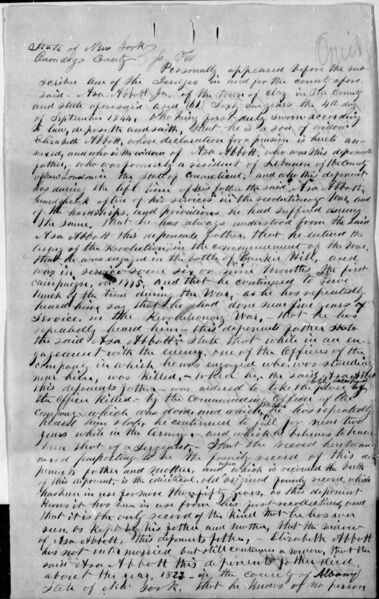 State of New York
Onondaga County } ss
Personally appeared before the sub
scriber one of the Judges in and for the county afore
said Asa Abbott Jun. of the Town of Clay in the County
and State aforesaid aged (61) Sixty one years the 4th day
of September 1844. Who being first duly sworn according
to law, deposeth and saith, That he is a son of widow
Elizabeth Abbott, whose declaration for a pension is hereto an
nexed, and who is the widow of Asa Abbott, who was this deponents
father, who was formerly a resident of Lebanon of the County
of New London in the State of Connecticut, and why this deponent
was during the life time of his father the said Asa Abbott,
heard speak often of his services in the revolutionary War, and
of the hardships, and privations he had suffered during
the same, that he had always understood from the said
Asa Abbott this deponents father, that he entered the
army of the Revolution in the commencement of the War,
that he was engaged in the battle of Bunker Hill, and
was in service some six or nine months the first
campaign, in 1775, and that he continued to serve
much of the time during the War, as he has repeatedly
heard him say that he had done near five years
service, in the Revolutionary War - that he has
repeatedly heard him - this deponents father state
the said Asa Abbott, state that while in an en
gagement with the enemy, one of the Officers of the
company in which he was engaged who was standing
near him, was killed, - when he, the said Asa Abbott
this deponents father - was ordered to take the place of
the officer killed - by the Commanding Officer of the
company - which was done, and which he has repeatedly
heard him state, he continued to fill for near two
years while in the Army, and which he believes to have
been that of a Sergeant. That the record
of the family record of this de
ponents father and mother, and which is recorded the birth
of this deponent, is the identical, old original family record, which
has been in use for more than fifty years, as this deponent
knows it has been in use from his first recollection, and
that it is the only record of the kind that he has ever
seen, as kept by his father and mother, that the widow
of Asa Abbott, this deponents father, - Elizabeth Abbott
has not intermarried but still continues a widow, that the
said Asa Abbott this deponents father died,
about the year, 1822 - in the county of Albany
State of New York, that he knows of no person